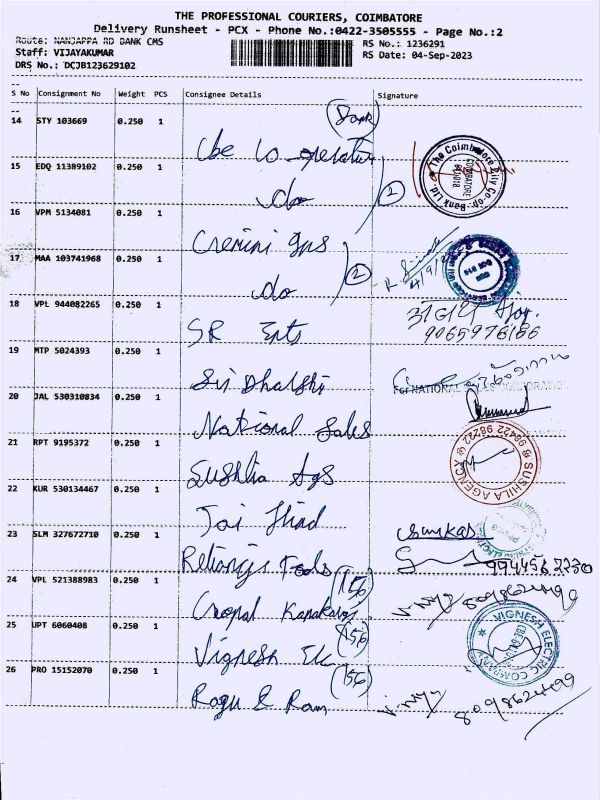 THE PROFESSIONAL COURIERS, COIMBATORE
Delivery Runsheet - PCX - Phone No.:0422-3505555 - Page No.:2
Route: NANJAPPA RD BANK CMS
RS No.: 1236291
Staff: VIJAYAKUMAR
RS Date: 04-Sep-2023
DRS No.: DCJB123629102
S No Consignment No Weight PCS Consignee Details Signature
14 STY 103669 0.250 1
(Bank)
Cbe Co-operative
15 EDQ 11389102 0.250 1
do
2
The Coimbatore City Co-op. Bank Ltd
COIMBATORE
641018
16 VPM 5134081 0.250 1
Gemini
17 MAA 103741968 0.250 1
do
2
18 VPL 944082265 0.250 1
SR Ents
9065976186
19 MTP 5024393 0.250 1
Sri Dharshi
20 JAL 530310834 0.250 1
National Sales
For NATIONAL SALES CORPORATION
21 RPT 9195372 0.250 1
Sushila Ags
SUSHILA AGENCY
98422 98422
22 KUR 530134467 0.250 1
Jai Hind
23 SLM 327672710 0.250 1
Reliance Tools
24 VPL 521388983 0.250 1
(156)
Gopal
25 UPT 6060408 0.250 1
(156)
Vignesh Elc
VIGNESH ELECTRIC COMPANY
26 PRO 15152070 0.250 1
(156)
Ragu & Ram